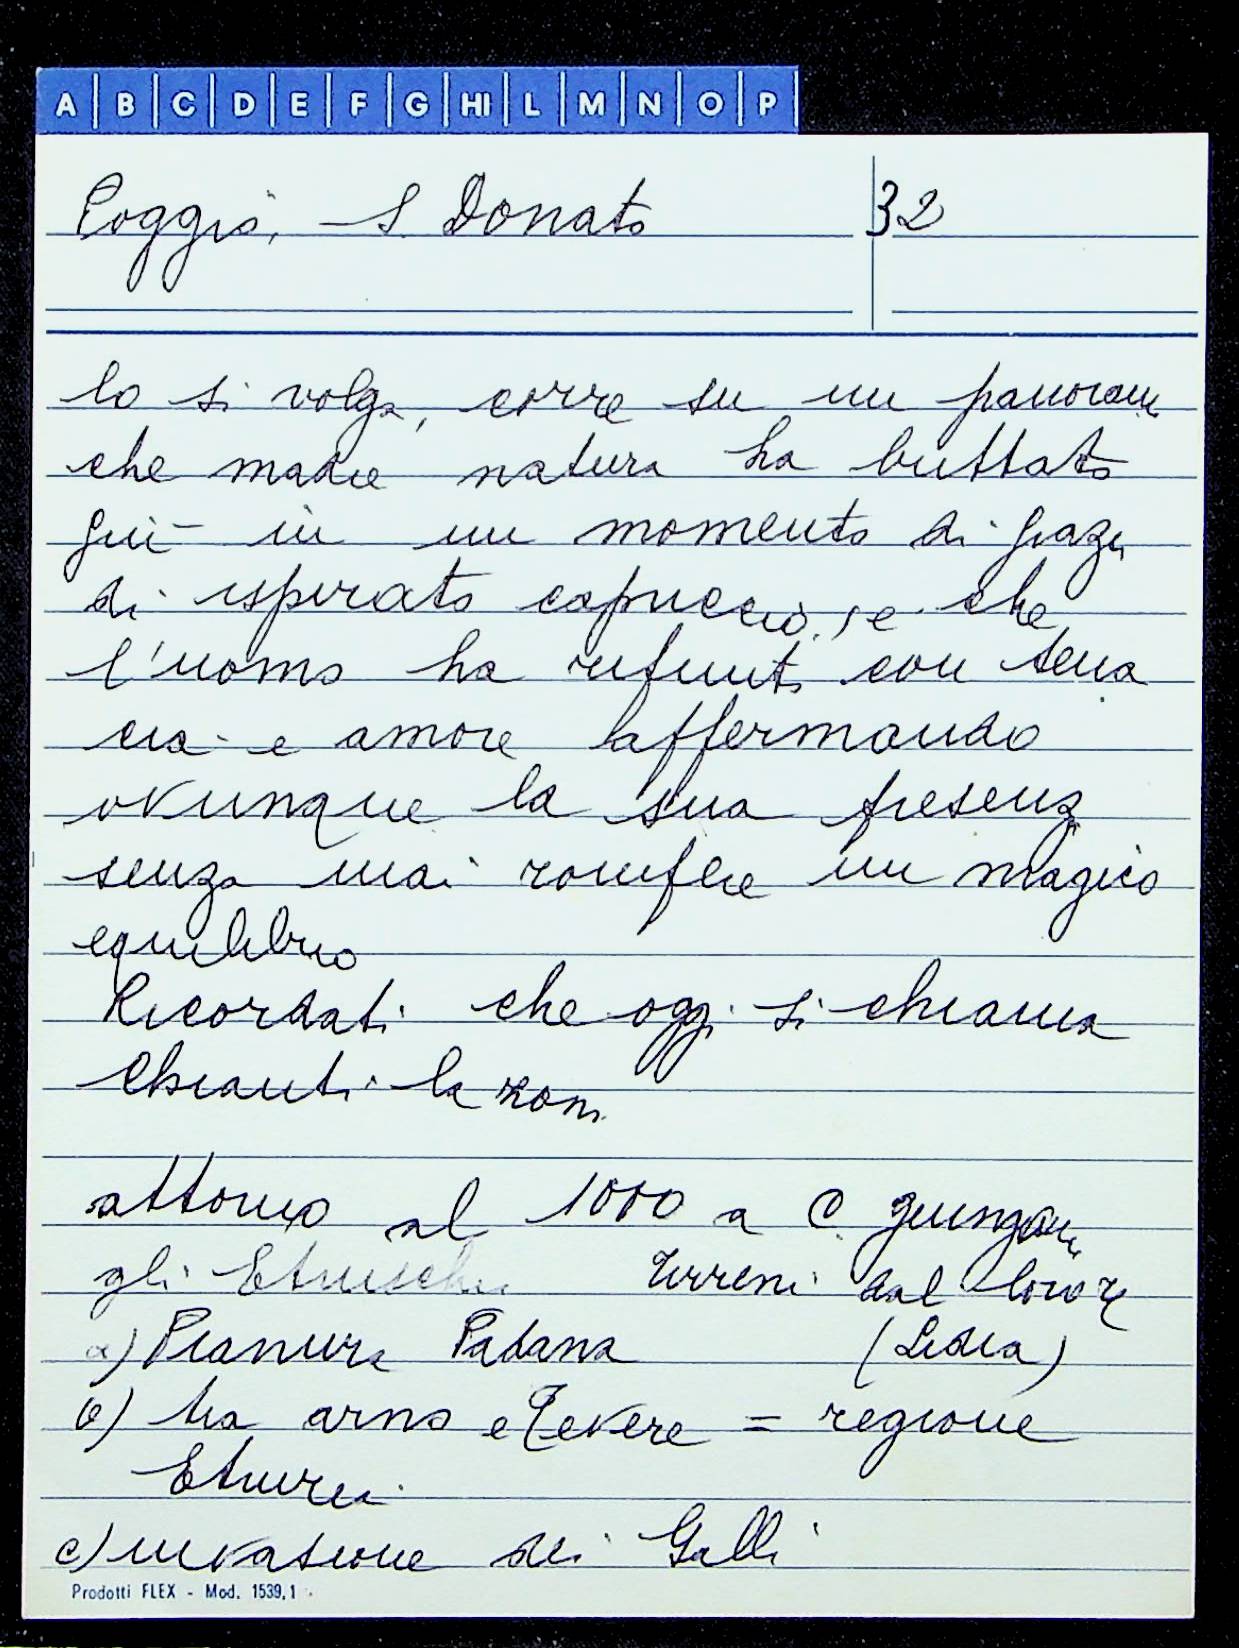 A B C D E F G HI L M N O P
Poggio, S. Donato 32
lo si volga, corre su un panoram
che madre natura ha buttato
giù in un momento di grazi
di ispirato capriccio, e che
l'uomo ha rifinito con tena
cia e amore affermando
ovunque la sua presenz
senza mai rompere un magico
equilibrio
Ricordati che oggi si chiama
Chianti la zona
attorno al 1000 a C giungon
gli Etruschi Tirreni dal
a) Pianura Padana (Lidia)
b) tra arno e Tevere = regione
Etruria
c) invasione dei Galli
Prodotti FLEX - Mod. 1539,1